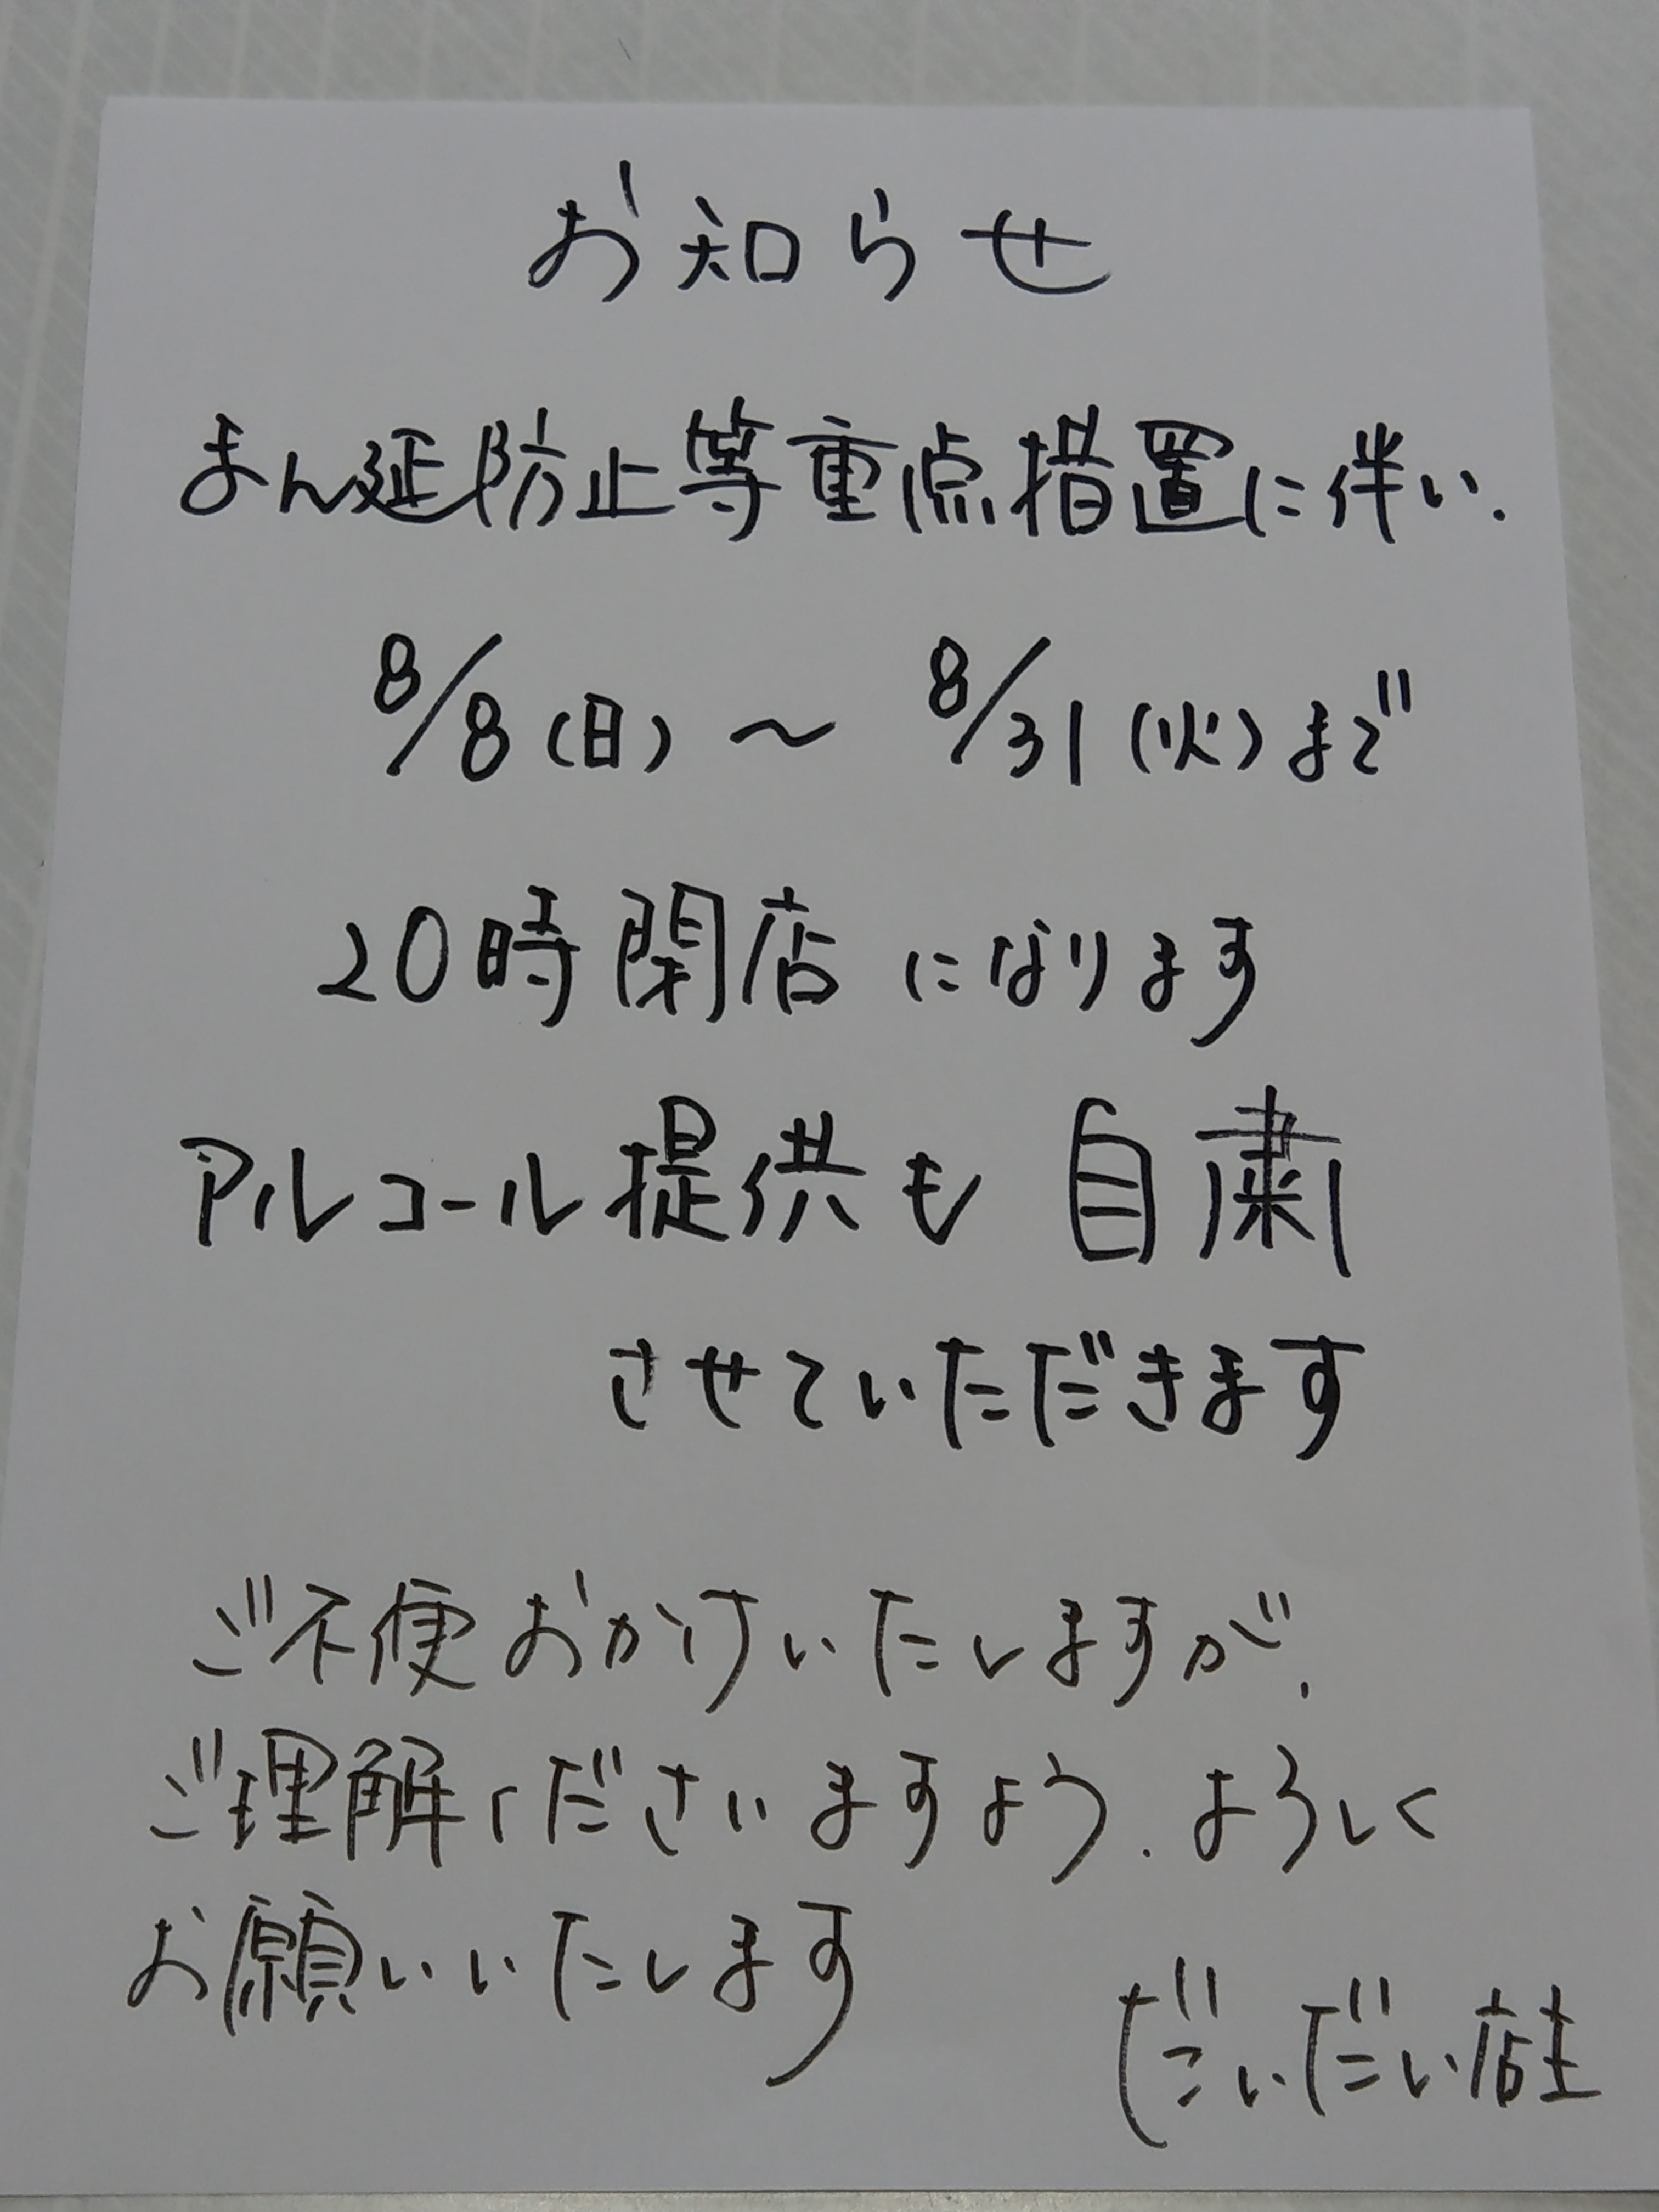 お知らせ
まん延防止等重点措置に伴い、
8/8(日)～8/31(火)まで
20時閉店になります
アルコール提供も自粛
させていただきます
ご不便おかけいたしますが、
ご理解くださいますよう、よろしく
お願いいたします
だいだい店主